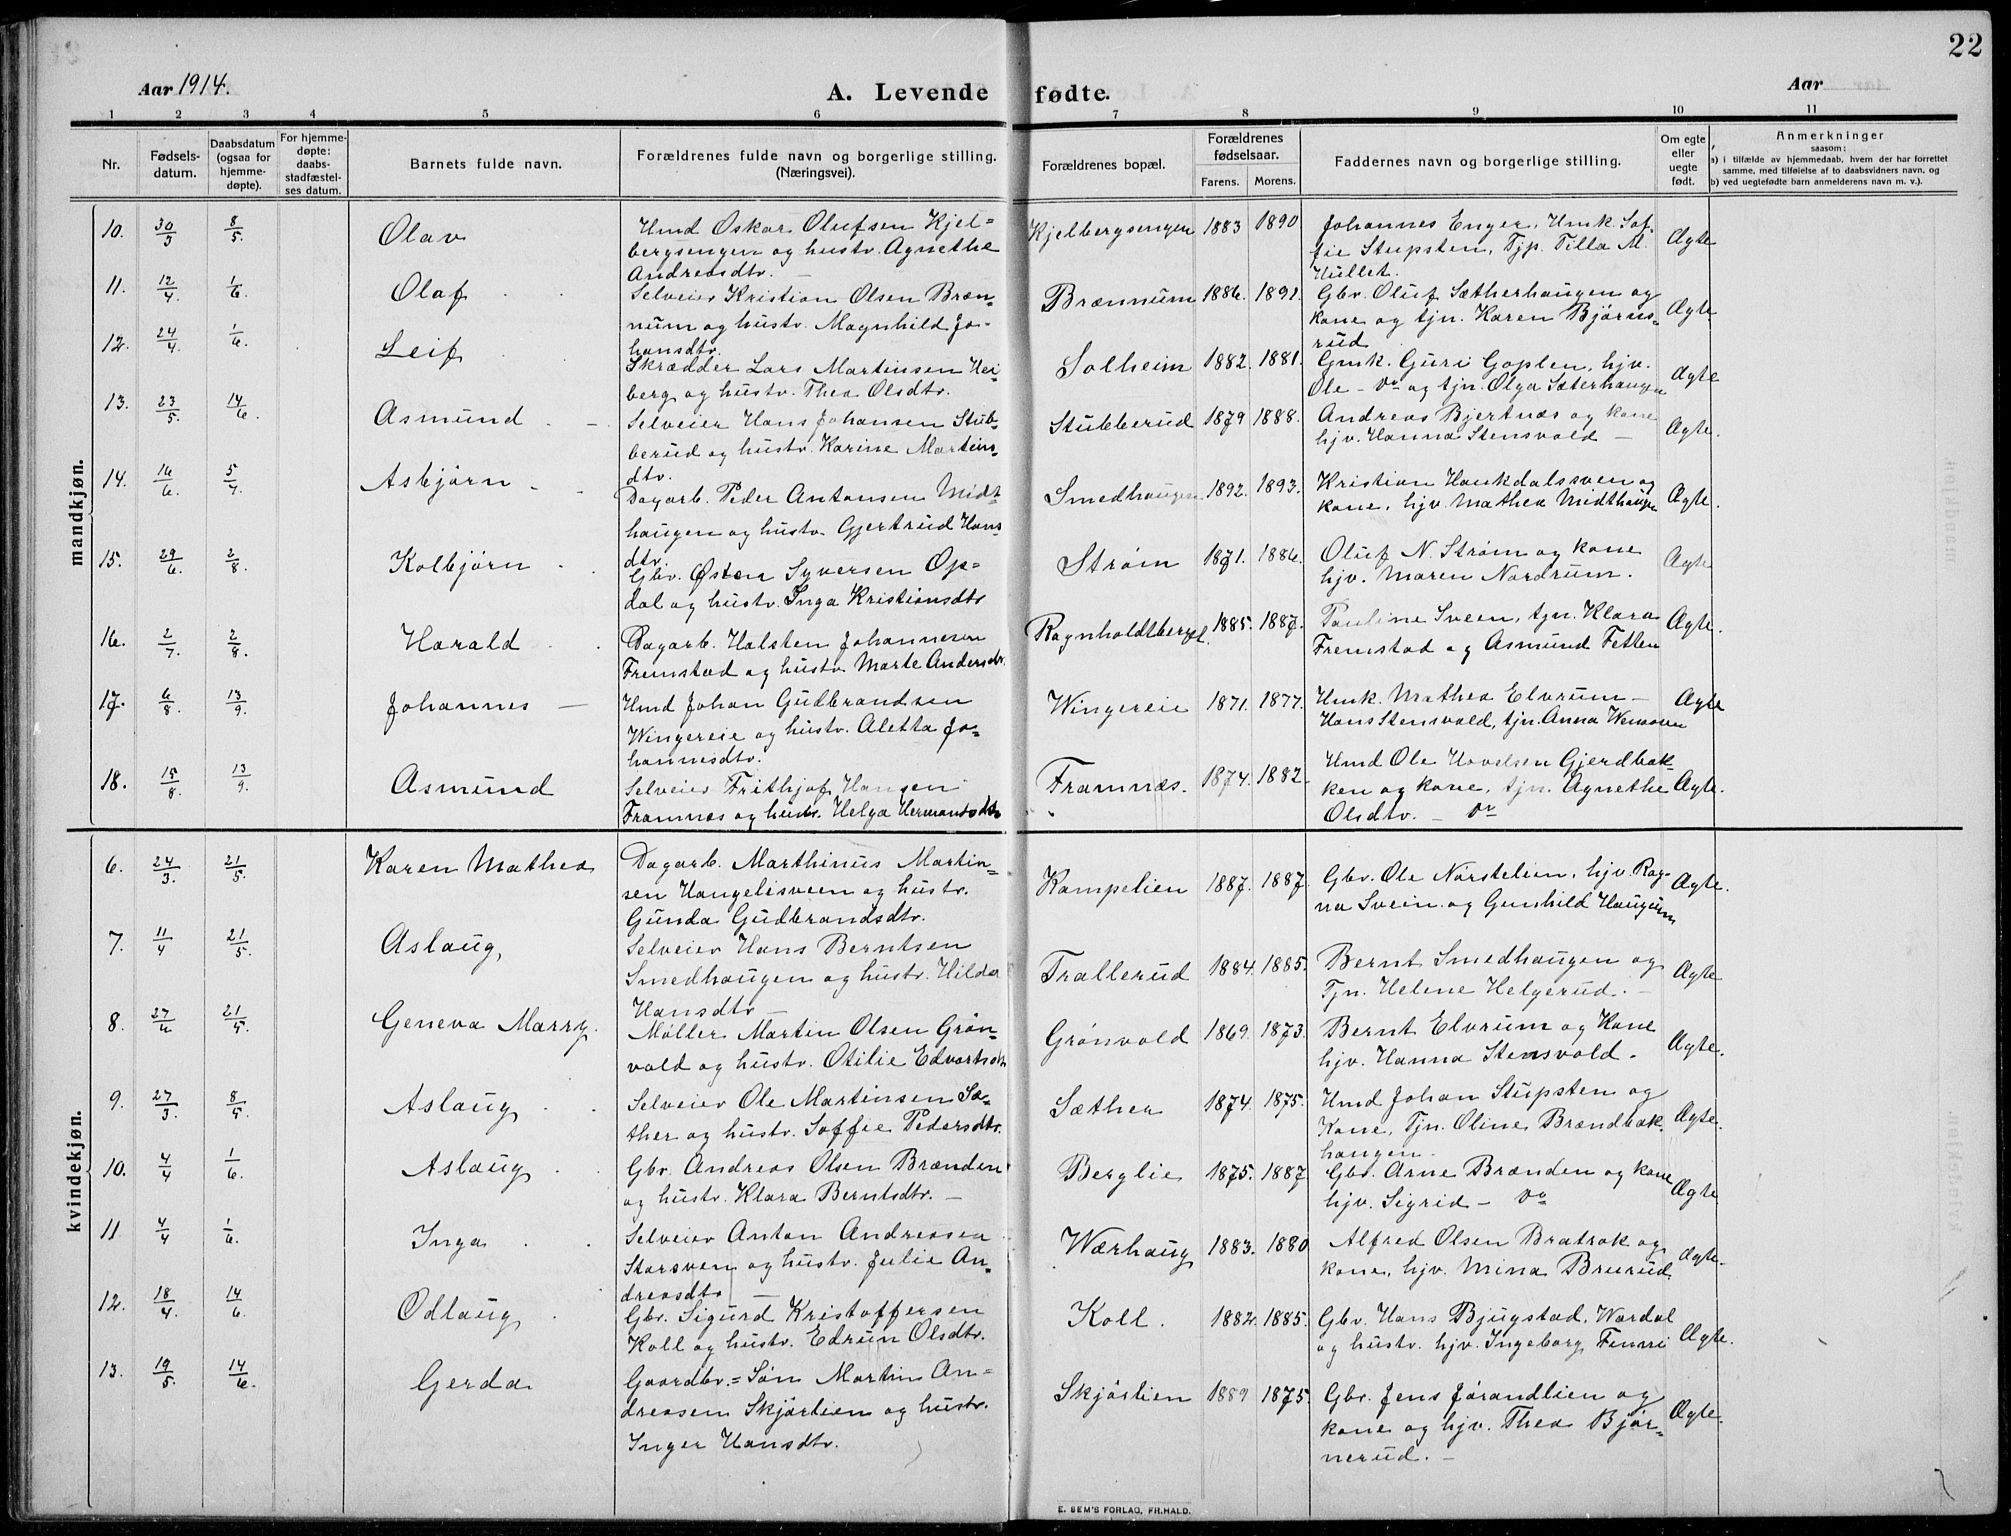 22
Aar 1914.
A. Levende fødte.
Aar
1 2 3 4 5 6 7 8 9 10 11
Nr.
Fødsels-
datum.
Daabsdatum
(ogsaa for
hjemme-
døpte).
For hjemme-
døpte:
daabs-
stadfæstel-
ses datum.
Barnets fulde navn.
Forældrenes fulde navn og borgerlige stilling.
(Næringsvei).
Forældrenes bopæl.
Forældrenes
fødselsaar.
Farens. Morens.
Faddernes navn og borgerlige stilling.
Om egte
eller
uegte
født.
Anmerkninger
saasom:
a) i tilfælde av hjemmedaab, hvem der har forrettet
samme, med tilføielse af to daabsvidners navn, og
b) ved uegtefødte barn anmelderens navn m. v.).
mandkjøn.
10. 30/3 8/5. Olav
Hmd Oskar Olufsen Kjel=
bergsengen og hustr. Agnethe
Andreasdtr. —
Kjelbergsengen 1883 1890
Johannes Enger, Hmk. Sof-
fie Stupsten, Tjp. Tilla M.
Hullet.
Ægte
11. 12/4 1/6. Olaf
Selveier Kristian Olsen Bræn=
num og hustr. Magnhild Jo-
hansdtr.
Brænnum 1886. 1891.
Gbr. Oluf Sætherhaugen og
kone og tjn. Karen Bjørns-
rud
Ægte
12. 24/4. 1/6. Leif
Skrædder Lars Martinsen Hei-
berg og hustr. Thea Olsdtr.
Solheim 1882. 1881.
Gmk. Guri Goplen, hjv.
Ole — Do og tjn. Olga Sæterhaugen
Ægte
13. 23/5. 14/6. Asmund
Selveier Hans Johansen Stub-
berud og hustr. Karine Martins-
dtr.
Stubberud 1879 1888.
Andreas Bjertnæs og kone
hjv. Hanna Stensvold —
Ægte.
14. 16/6. 5/7. Asbjørn
Dagarb. Peder Antonsen Midt-
haugen og hustr. Gjertrud Hans-
dtr.
Smedhaugen 1892. 1893.
Kristian Haukdalssveen og
kone, hjv. Mathea Midthaugen
Ægte.
15. 29/6. 2/8. Kolbjørn
Gbr. Østen Syversen Op=
dal og hustr. Inga Kristiansdtr
Strøm 1871. 1886.
Oluf N. Strøm og kone
hjv. Maren Nordrum.
Ægte
16. 2/7. 2/8. Harald
Dagarb. Halsten Johannesen
Fremstad og hustr. Marte Andersdtr.
Ragnholdtberget 1885. 1887.
Pauline Sveen, tjn. Klara
Fremstad og Asmund Fetten
Ægte.
17. 6/8. 13/9. Johannes —
Hmd Johan Gudbrandsen
Wingereie og hustr. Aletta Jo-
hannesdtr.
Wingereie 1871. 1877.
Hmk. Mathea Elvrum —
Hans Stensvold, tjn. Anna
Ægte
18. 15/8. 13/9. Asmund
Selveier Frithjof Hansen
Framnæs og hustr. Helga Hermansdtr.
Framnæs. 1874. 1882.
Hmd Ole Hovelsen Gjerdbak-
ken og kone, tjn. Agnethe
Olsdtr. — Do
Ægte.
kvindekjøn.
6. 24/3. 21/5. Karen Mathea
Dagarb. Marthinus Martin-
sen Hangelisveen og hustr.
Gunda Gudbrandsdtr.
Kampelien 1887. 1887
Gbr. Ole Nørstelien, hjv. Rag-
na Svein og Gunhild Haugum
Ægte.
7. 11/4 21/5. Aslaug,
Selveier Hans Berntsen
Smedhaugen og hustr. Hilda
Hansdtr —
Trallerud 1884. 1885.
Bernt Smedhaugen og
Tjn. Helene Helgerud. —
Ægte
8. 27/4 21/5. Geneva Marry.
Møller Martin Olsen Grøn-
vold og hustr. Otilie Edvartsdtr
Grønvold 1869. 1873.
Bernt Elvrum og Kone
hjv. Hanna Stensvold.
Ægte.
9. 27/3. 8/5. Aslaug
Selveier Ole Martinsen Sæ-
ther og hustr. Soffie Pedersdtr.
Sæther 1874. 1875.
Hmd Johan Stupsten og
Kone, Tjn. Oline Brændbak-
haugen.
Ægte.
10. 4/4 1/6. Aslaug
Gbr. Andreas Olsen Brænden
og hustr. Klara Berntsdtr. —
Berglie 1875. 1887
Gbr. Arne Brænden og kone
hjv. Sigrid — Do
Ægte
11 4/4 1/6. Inga
Selveier Anton Andreasen
Storsveen og hustr. Julie An-
dreasdtr —
Wærhaug 1883. 1880
Alfred Olsen Bratrok og
kone, hjv. Mina Bruerud.
Ægte.
12. 18/4. 14/6. Odlaug
Gbr. Sigurd Kristoffersen
Koll og hustr. Edrun Olsdtr.
Koll. 1882. 1885.
Gbr. Hans Bjugstad, Wardal
og hustr. hjv. Ingeborg Finni
Ægte.
13. 19/5. 14/6. Gerda
Gaardbr.=Søn Martin An=
dreasen Skjøslien og hustr.
Inger Hansdtr.
Skjøslien 1889 1875.
Gbr. Jens Jørandlien og
kone og hjv. Thea Bjør-
nerud. —
Ægte.
E. SEM'S FORLAG, FR.HALD.